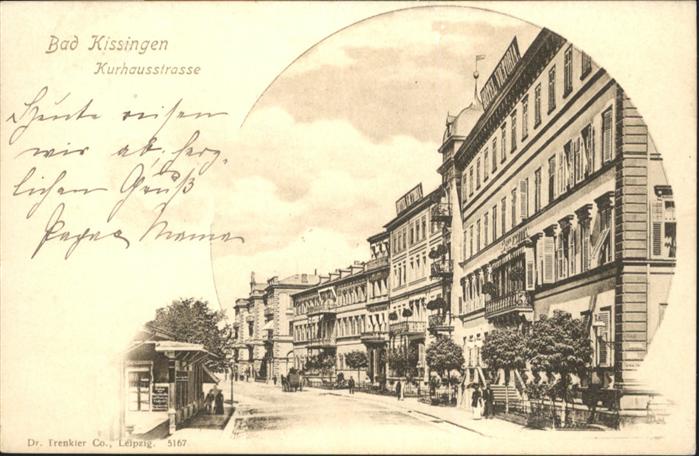 Bad Kissingen
Kurhausstrasse
Heute reisen
wir ab; herz-
lichen Gruß
Papa u Mama
HOTEL VICTORIA
Dr. Trenkler Co., Leipzig. 5167